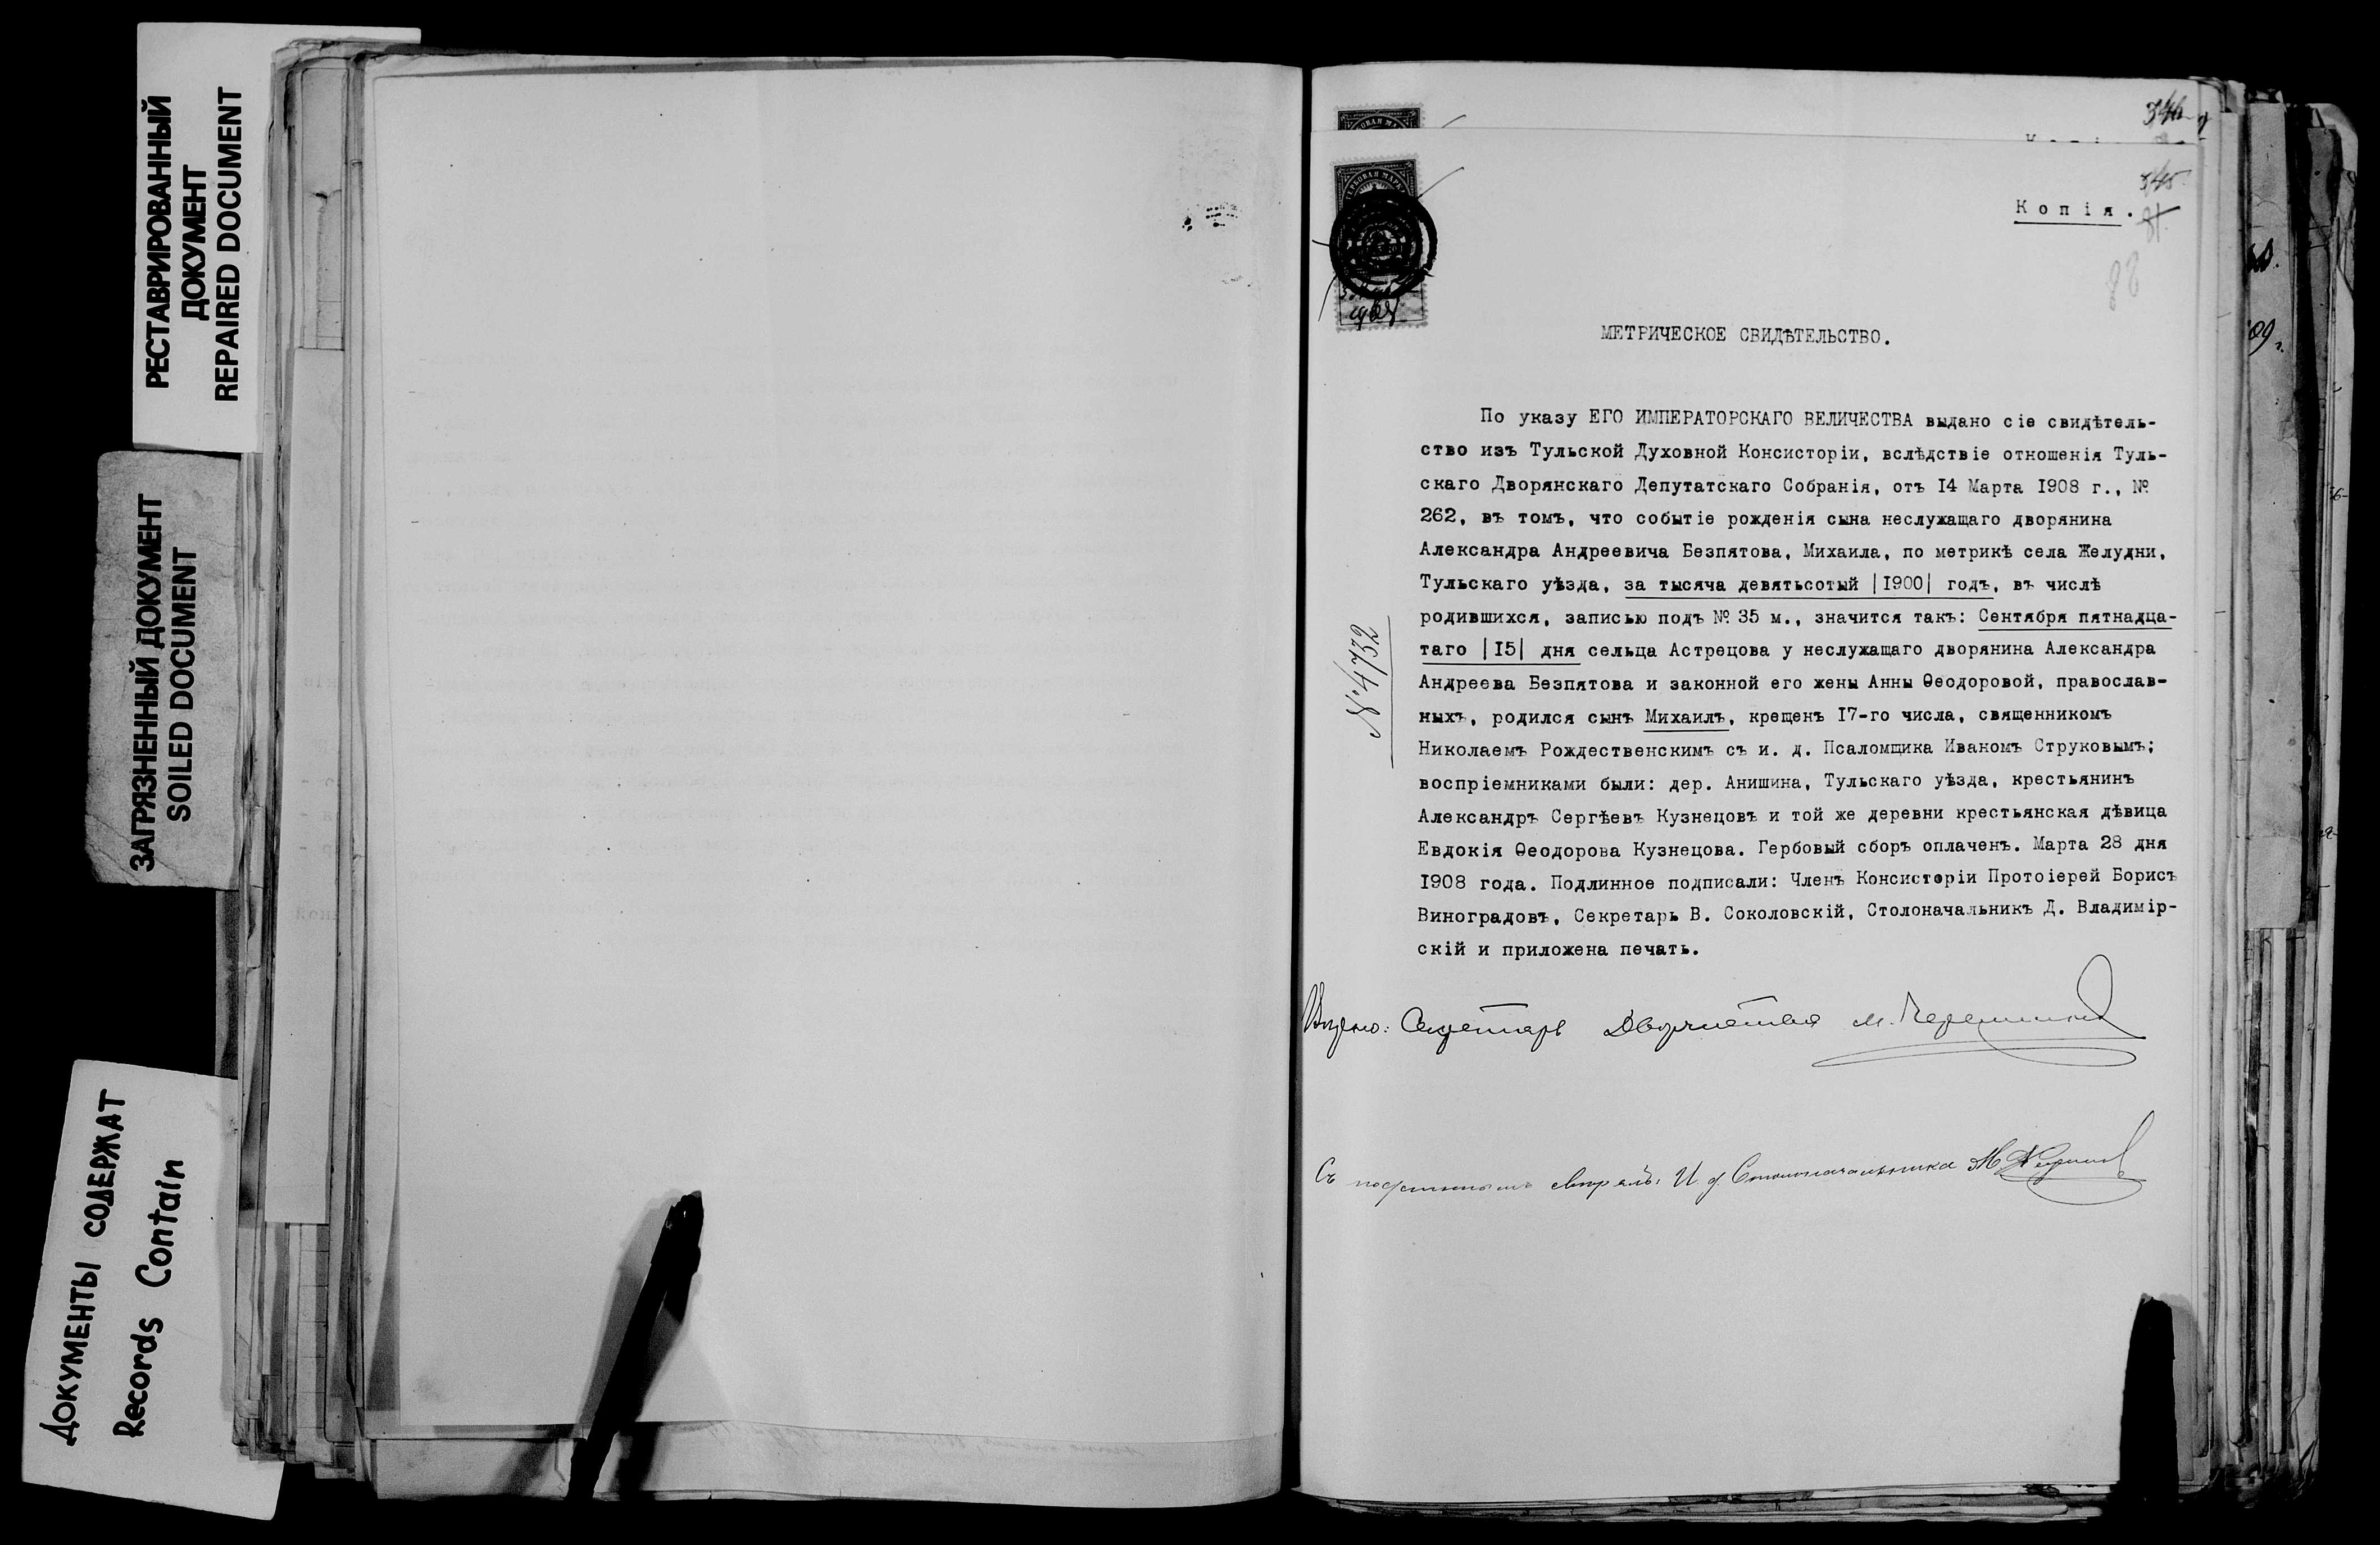 РЕСТАВРИРОВАННЫЙ
ДОКУМЕНТ
REPAIRED DOCUMENT
ЗАГРЯЗНЕННЫЙ ДОКУМЕНТ
SOILED DOCUMENT
ДОКУМЕНТЫ СОДЕРЖАТ
Records Contain
346
345
Копія.
81.
88
МЕТРИЧЕСКОЕ СВИДѢТЕЛЬСТВО.
По указу ЕГО ИМПЕРАТОРСКАГО ВЕЛИЧЕСТВА выдано сіе свидѣтель-
ство изъ Тульской Духовной Консисторіи, вслѣдствіе отношенія Туль-
скаго Дворянскаго Депутатскаго Собранія, отъ I4 Марта I908 г., №
262, въ томъ, что событіе рожденія сына неслужащаго дворянина
Александра Андреевича Безпятова, Михаила, по метрикѣ села Желудни,
Тульскаго уѣзда, за тысяча девятьсотый |I900| годъ, въ числѣ
родившихся, записью подъ № 35 м., значится такъ: Сентября пятнадца-
таго |I5| дня сельца Астрецова у неслужащаго дворянина Александра
Андреева Безпятова и законной его жены Анны Ѳеодоровой, православ-
ныхъ, родился сынъ Михаилъ, крещенъ I7-го числа, священникомъ
Николаемъ Рождественскимъ съ и. д. Псаломщика Иваномъ Струковымъ;
воспріемниками были: дер. Анишина, Тульскаго уѣзда, крестьянинъ
Александръ Сергѣевъ Кузнецовъ и той же деревни крестьянская дѣвица
Евдокія Ѳеодорова Кузнецова. Гербовый сборъ оплаченъ. Марта 28 дня
I908 года. Подлинное подписали: Членъ Консисторіи Протоіерей Борисъ
Виноградовъ, Секретарь В. Соколовскій, Столоначальникъ Д. Владимір-
скій и приложена печать.
№ 4732
Секретарь Дворянства М.
Съ подлиннымъ свѣрялъ: И. д. Столоначальника М.